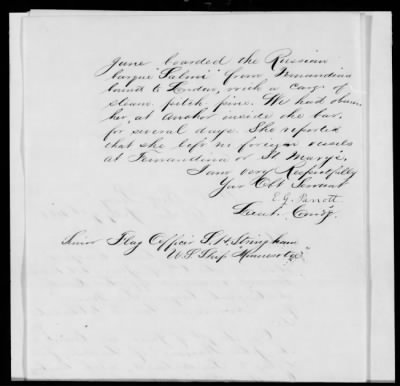 June boarded the Russian
barque "Salmi" from Fernandina
bound to London, with a cargo of
steam pitch pine. We had observed
her, at anchor inside the bar,
for several days. She reported
that she left no foreign vessels
at Fernandina or St Mary's.
I am very Respectfully
Your Obt Servant
E. G. Parrott
Lieut. Comdg.
Senior Flag Officer S. H. Stringham
U.S. Ship "Minnesota"